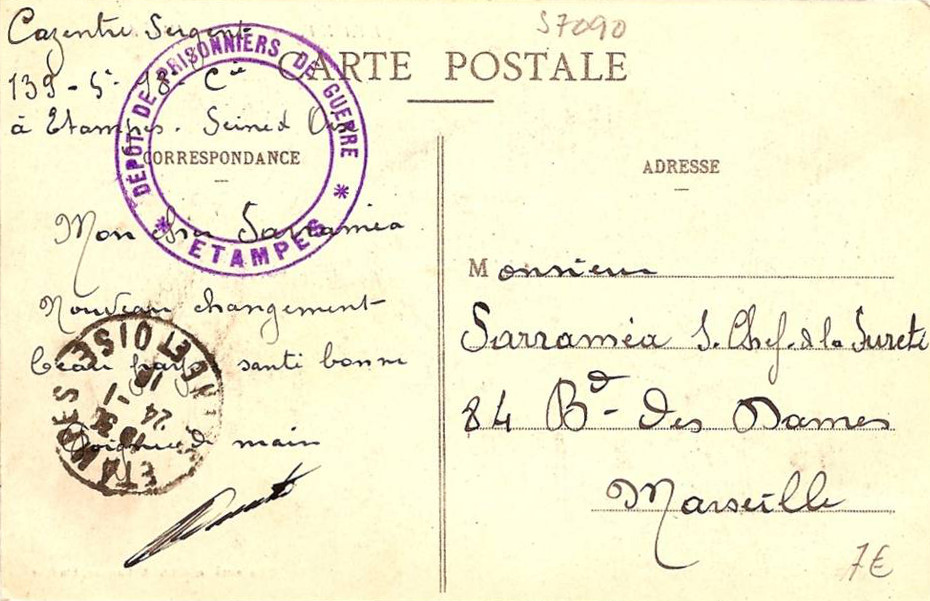 57090
CARTE POSTALE
Cazentre Sergent
139 - 5e 18e Cie
à Etampes. Seine d Oise
DÉPÔT DE PRISONNIERS DE GUERRE
* ETAMPES *
CORRESPONDANCE
Mon cher Sarraméa
Nouveau changement
beau pays santé bonne
Poignée de main
ETAMPES
ET OISE
24
ADRESSE
Monsieur
Sarraméa S. Chef. de la Sureté
84 Bd - des Dames
Marseille
7€